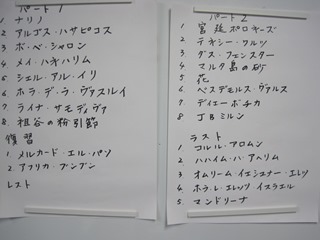 パート1
1. ナリノ
2. アルゴス・ハサピコス
3. ボ・ベ・シャロン
4. メイ・ハギハリム
5. シェル・アル・イリ
6. ホラ・デ・ラ・ヴァスルイ
7. ライナ・サモディヴァ
8. 祖谷の粉引節
復習
1. メルカード・エル・パソ
2. アフリカ・ブンブン
レスト
パート2
1. 宮廷ポロネーズ
2. テキシー・ワルツ
3. ダス・フェンスター
4. マルタ島の砂
5. 花
6. ベスデモルス・ヴァルス
7. ディエーボチカ
8 JBミルン
ラスト
1. コルル・アロムン
2. ハハイム・ハ・アヘリム
3. オムリーム・イェシュナー・エレツ
4. ホラ・レ・エレッツ・イスラエル
5. マンドリーナ